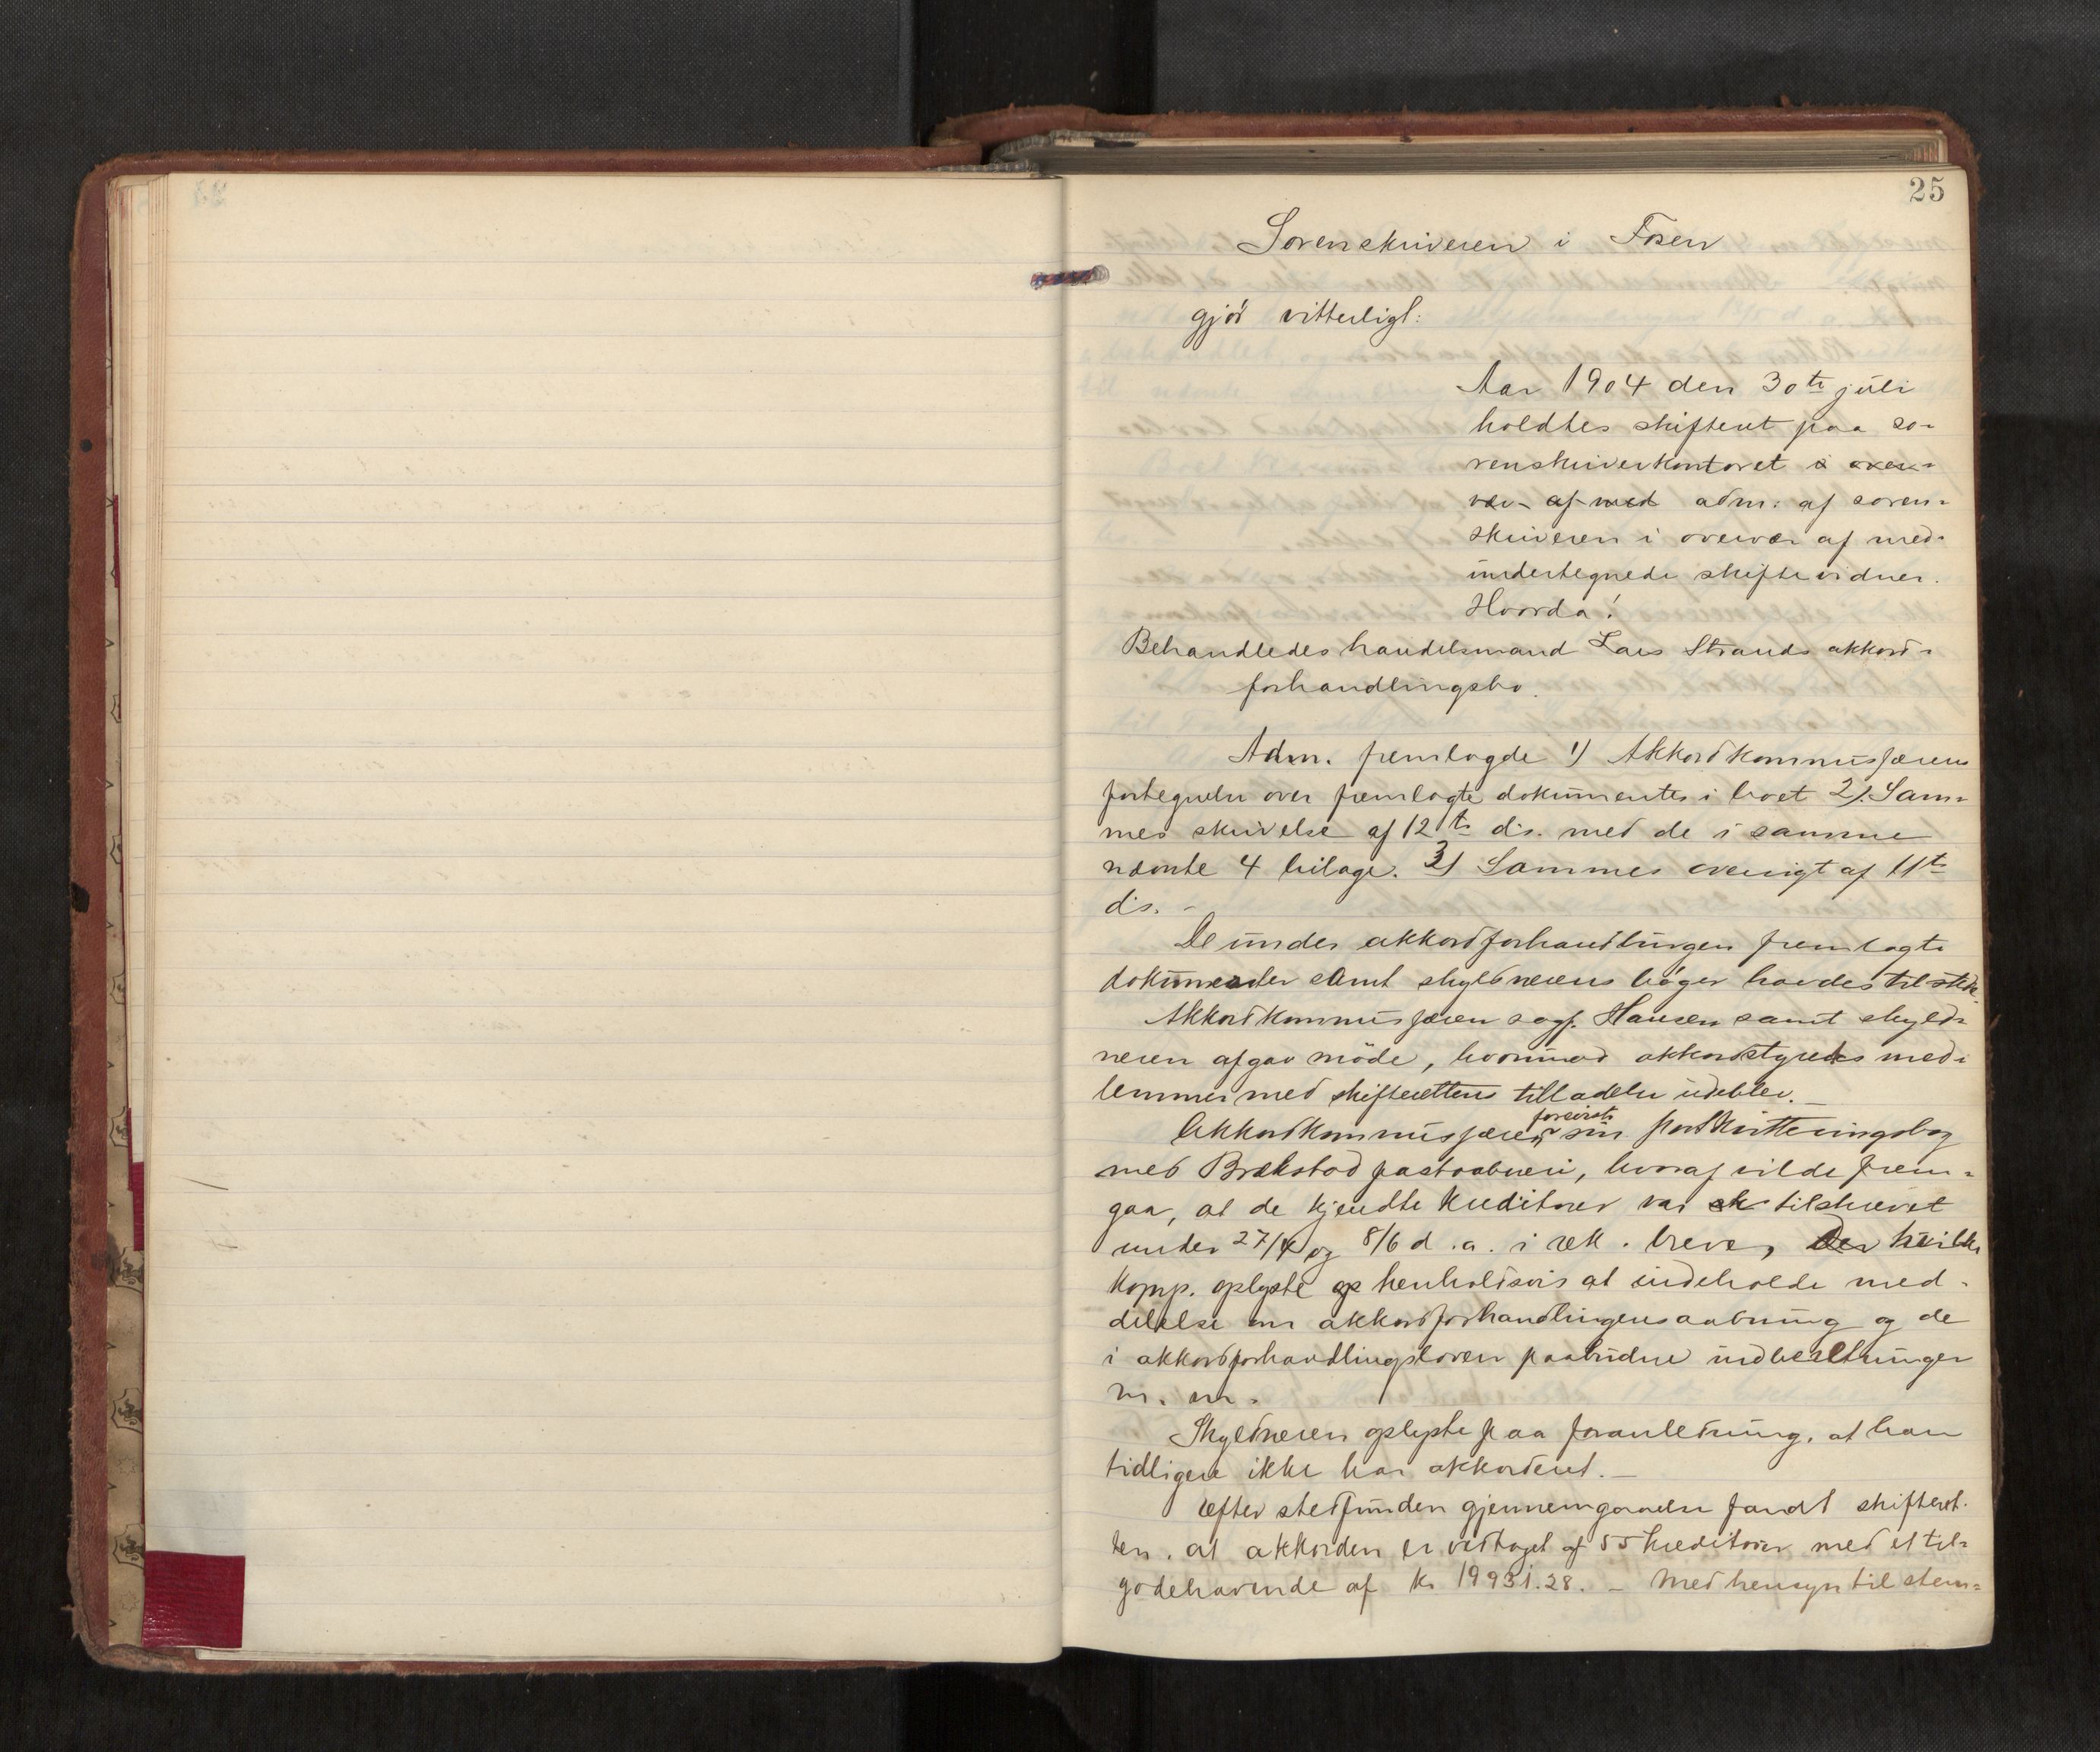 25
Sorenskriveren i Fosen
gjør vitterligt:
Aar 1904 den 30te juli
holdtes skifteret paa so-
renskriverkontoret i over-
vær af med adm: af soren-
skriveren i overvær af med-
undertegnede skiftevidner.
Hvorda!
Behandledes handelsmand Lars Strands akkord-
forhandlingsbo.
Adm. fremlagde 1) Akkordkommissærens
fortegnelse over fremlagte dokumenter i boet 2). Sam-
mes skrivelse af 12te ds. med de i samme
nævnte 4 bilage. 3) Sammes oversigt af 11te
ds. -
De under akkordforhandlingen fremlagte
dokumenter samt skyldnerens bøger havdes tilstede.
Akkordkommissæren sagf. Hansen samt skyld-
neren afgav møde, hvorimod akkordstyrets med-
lemmer med skifterettens tilladelse udeblev. -
Akkordkommissæren foreviste sin postkvitteringsbog
med Brækstad postaabneri, hvoraf vilde frem-
gaa, at de kjendte kreditorer var tilskrevet
under 27/4 og 8/6 d.a. i rek. breve, hvilke
komp. oplyste henholdsvis at indeholde med-
delelse om akkordforhandlingens aabning og de
i akkordforhandlingsloven paabudne indberetninger
m. m.
Skyldneren oplyste paa foranledning, at han
tidligere ikke har akkorderet. -
Efter stedfunden gjennemgaaelse fandt skifteret-
ten, at akkorden er vedtaget af 55 kreditorer med et til-
godehavende af kr 19931.28. - Med hensyn til stem-